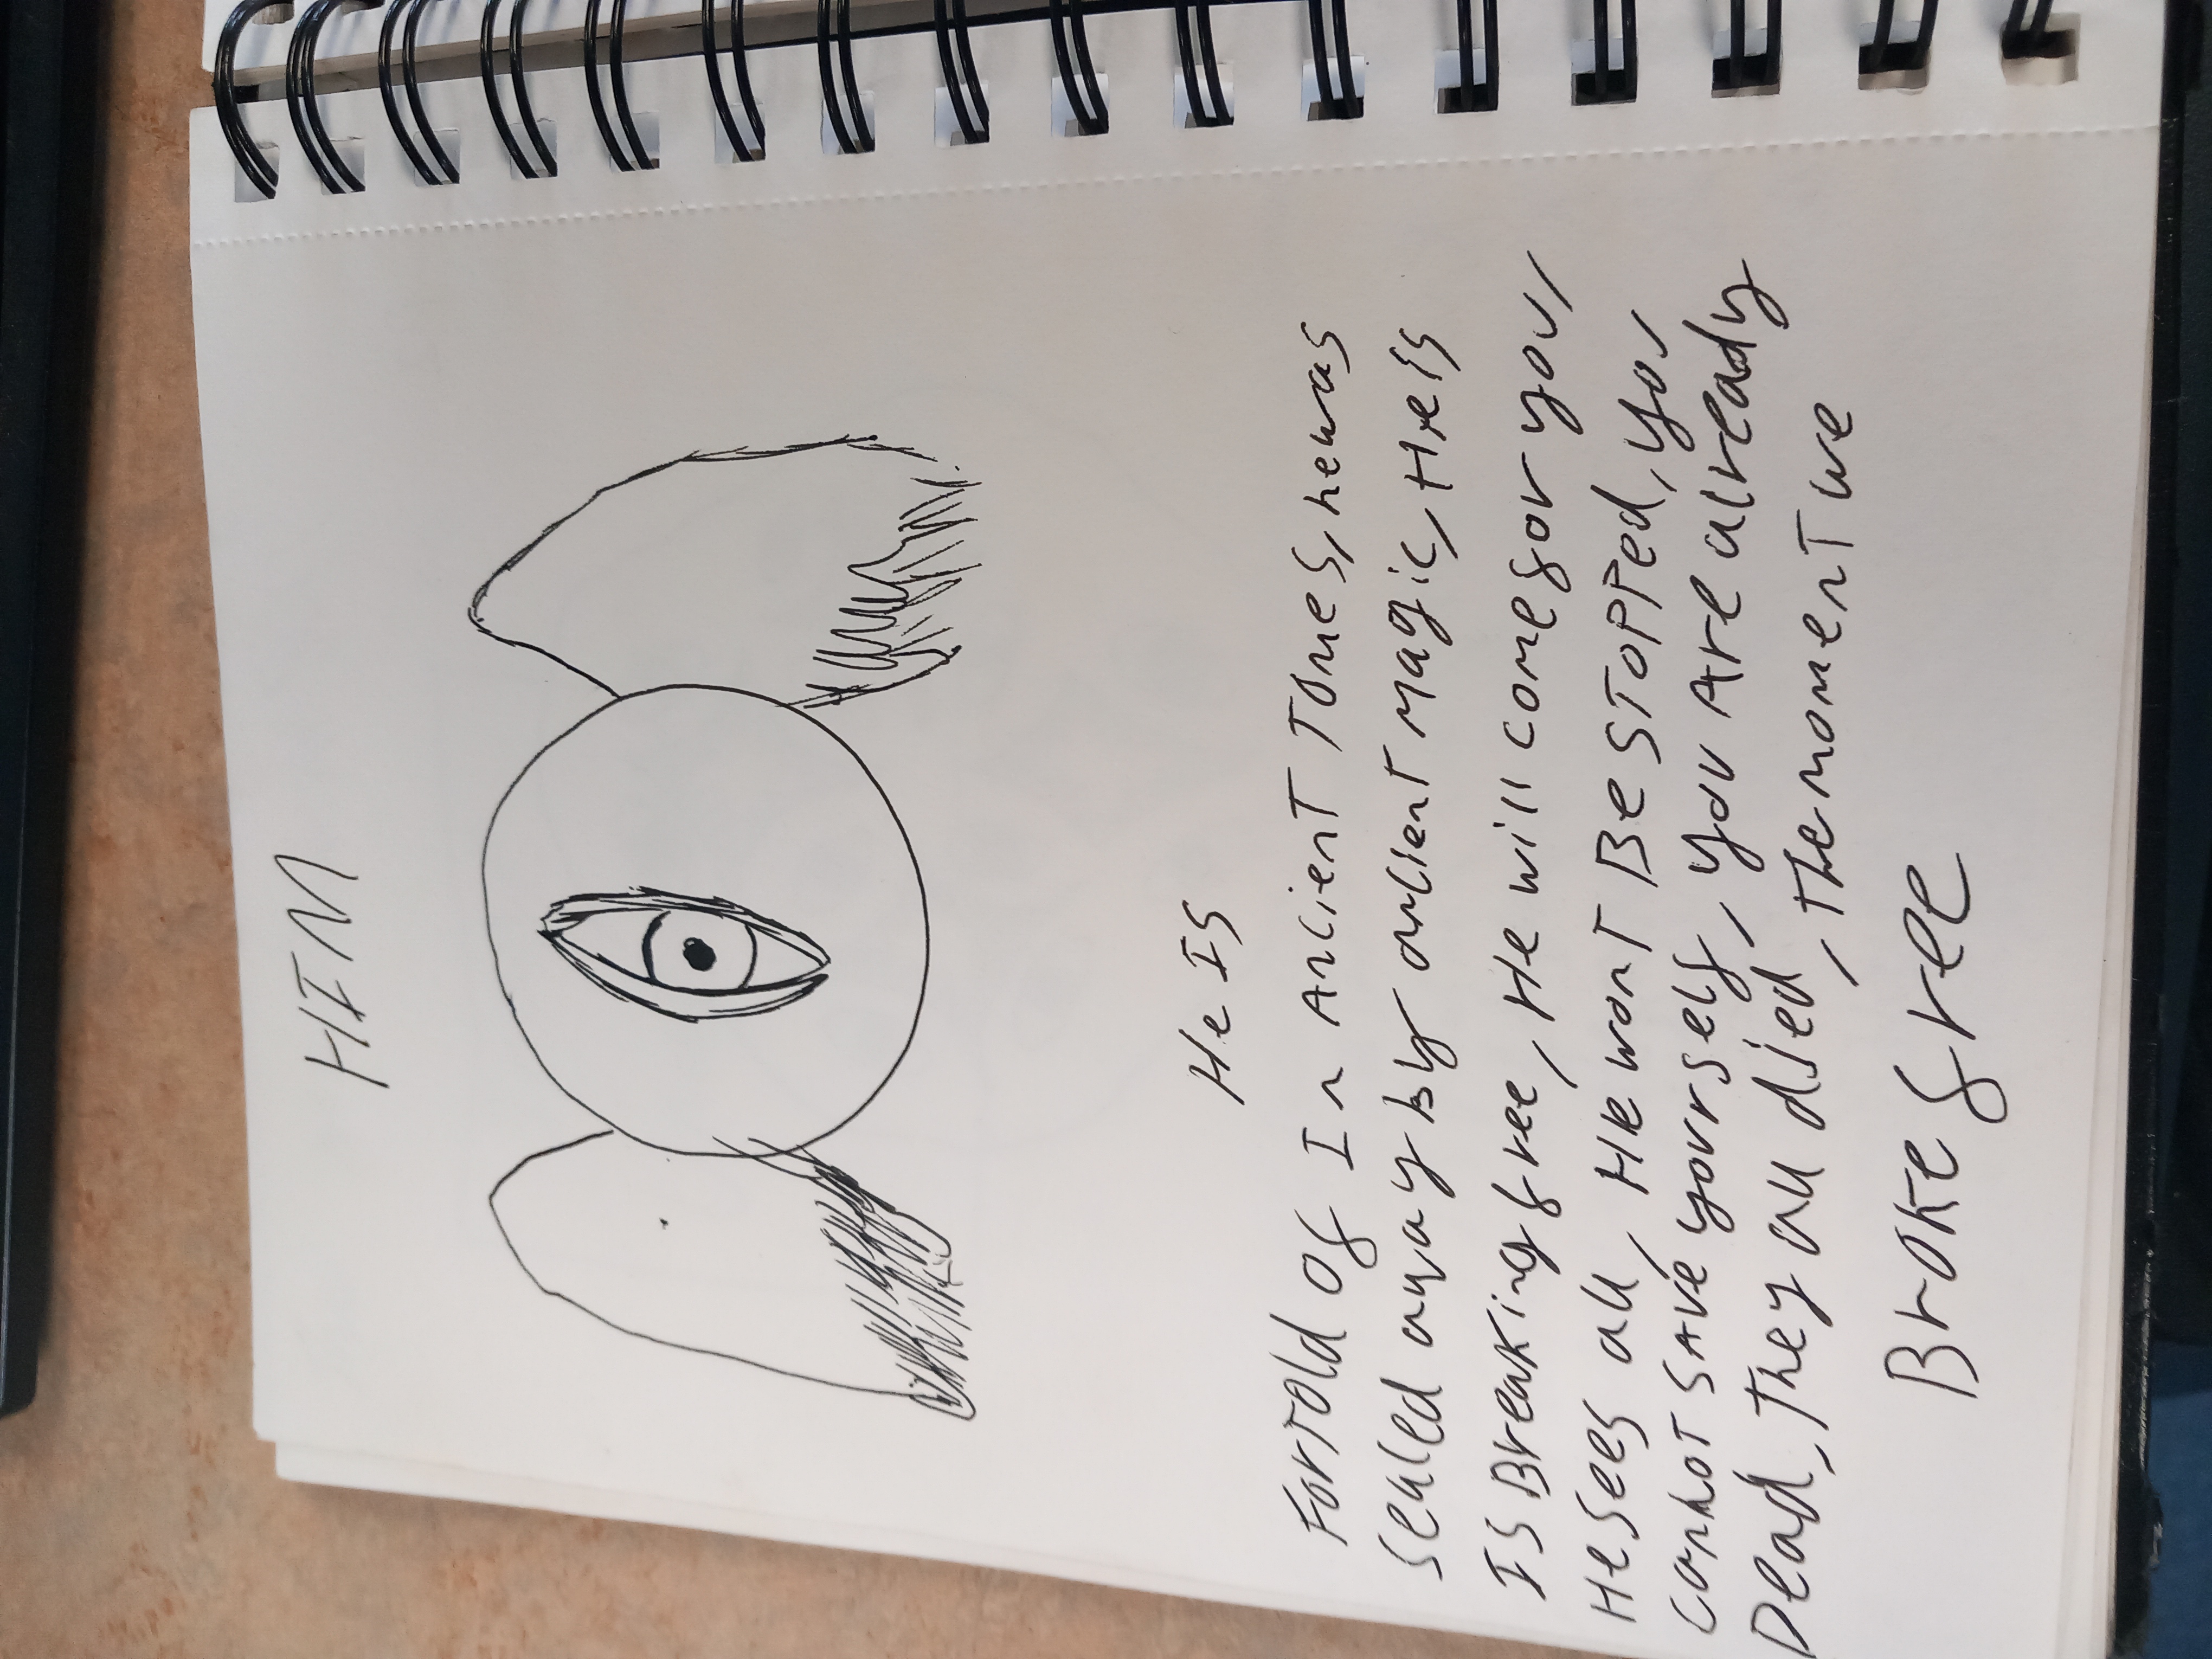 HIM
He IS
Fortold of In Ancient Tomes, he was
sealed away by ancient magic, He is
IS Breaking free, He will come for you,
He sees all, He wont Be stopped, you
cannot save yourself, you Are already
Dead, They all died, the moment we
Broke free